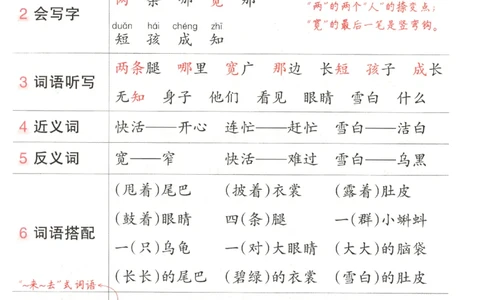 两 条 哪 宽 那
"两"的两个"人"的捺变点;
2 会写字
"宽"的最后一笔是竖弯钩。
duǎn hái chéng zhī
短 孩 成 知
3 词语听写
两条腿 哪里 宽广 那边 长短 孩子 成长
无知 身子 他们 看见 眼睛 雪白 什么
4 近义词 快活——开心 连忙——赶忙 雪白——洁白
5 反义词 宽——窄 快活——难过 雪白——乌黑
(甩着)尾巴 (披着)衣裳 (露着)肚皮
(鼓着)眼睛 四(条)腿 一(群)小蝌蚪
6 词语搭配
一(只)乌龟 一(对)大眼睛 (大大)的脑袋
(长长)的尾巴 (碧绿)的衣裳 (雪白)的肚皮
"~来~去"式词语